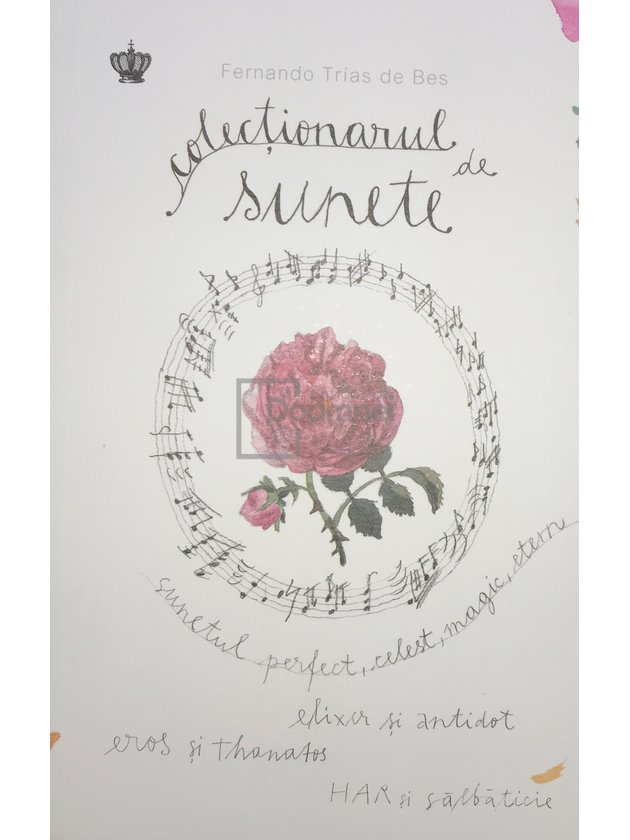 Fernando Trías de Bes
colecționarul
de
sunete
sunetul perfect, celest, magic, etern
elixir și antidot
eros și thanatos
HAR și sălbăticie